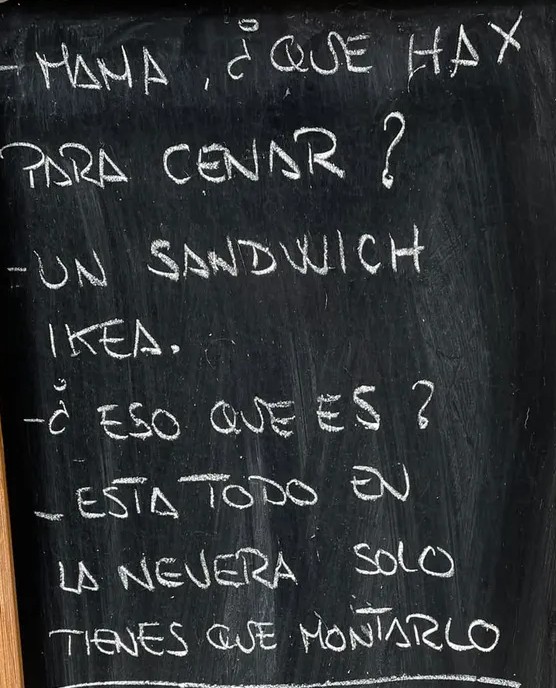 - MAMA, ¿QUE HAY
PARA CENAR?
- UN SANDWICH
IKEA.
- ¿ESO QUE ES?
- ESTA TODO EN
LA NEVERA SOLO
TIENES QUE MONTARLO